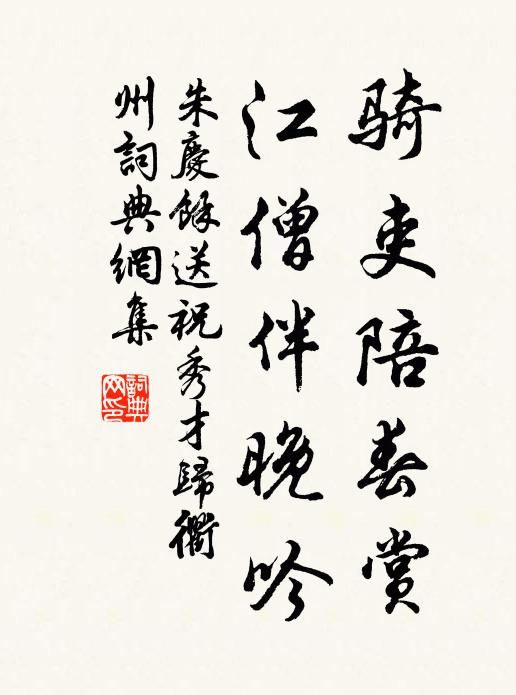 騎吏陪春賞
江僧伴晚吟
朱慶餘送祝秀才歸衢
州詞典網集
詞典
网印